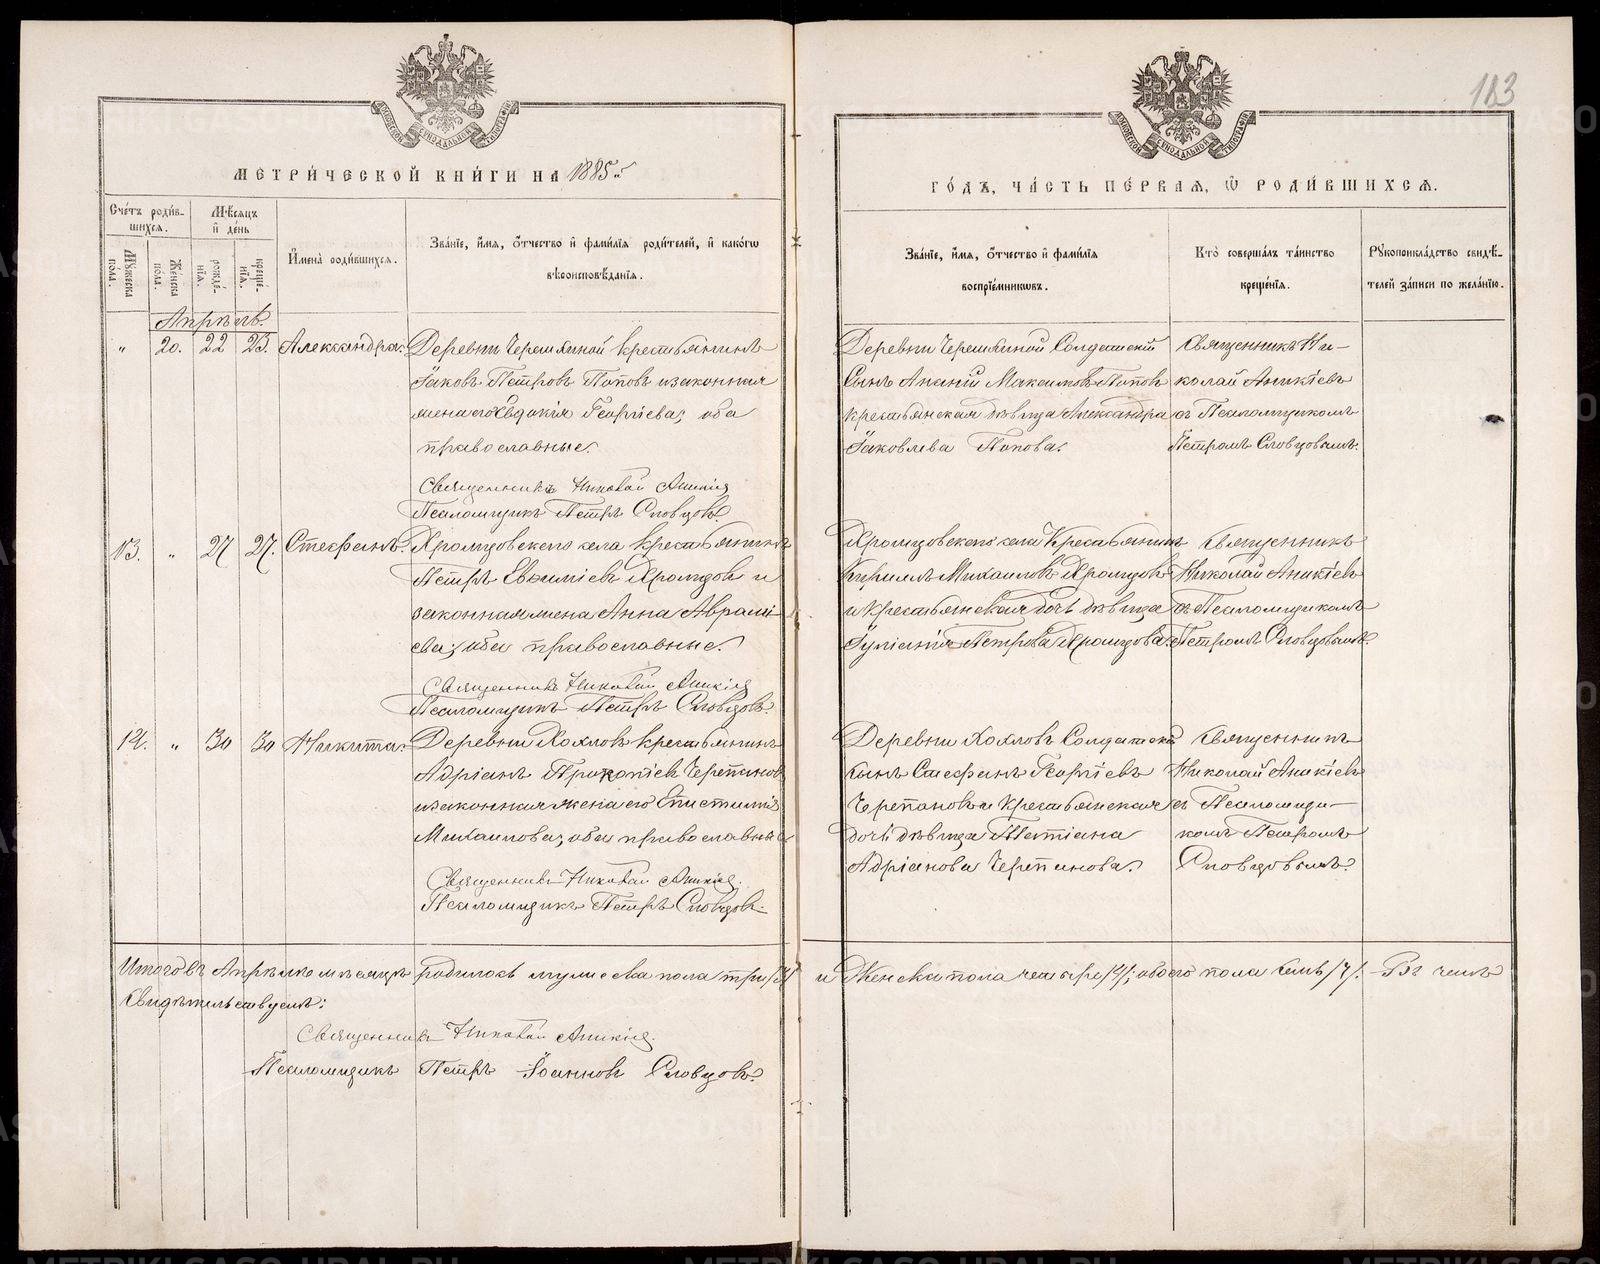 183
МЕТРИ́ЧЕСКОЙ КНИ́ГИ НА 1885й
ГО́ДЪ, ЧА́СТЬ ПЕ́РВАЯ, Ѡ РОДИ́ВШИХСЯ.
Сче́тъ роди́в-
шихся.
Мѣ́сяцъ
и де́нь
Мꙋ́жеска
по́ла.
Же́нска
по́ла.
рожде́-
нїя.
креще́-
нїя.
И́мена̀ роди́вшихся.
Зва́нїе, и́мя, о́тчество и фами́лїя роди́телей, и како́гѡ
вѣроисповѣ́данїя.
Зва́нїе, и́мя, о́тчество и фами́лїя
воспрїе́мникѡвъ.
Кто̀ соверша́лъ та́инство
креще́нїя.
Рꙋкоприкла́дство свидѣ́-
телей за́писи по жела́нїю.
Апрѣль.
" 20. 22 23. Александра. Деревни Черемхиной крестьянинъ
Іаковъ Петровъ Поповъ и законная
жена его Евдокія Георгіева; оба
православные.
Священникъ Николай Аникіев
Псаломщикъ Петръ Словцовъ.
Деревни Черемхиной Солдатскій
Сынъ Ананій Максимовъ Поповъ
крестьянская дѣвица Александра
Іаковлева Попова.
Священникъ Ни-
колай Аникіевъ
съ Псаломщикомъ
Петромъ Словцовымъ.
13. " 27 27. Стефанъ. Хромцовскаго села крестьянинъ
Петръ Евѳиміевъ Хромцовъ и
законная жена Анна Аврамі-
ева; оба православные.
Священникъ Николай Аникіев
Псаломщикъ Петръ Словцовъ.
Хромцовскаго села Крестьянинъ
Кириллъ Михаиловъ Хромцовъ
и крестьянская дочь дѣвица
Іуліанія Петрова Хромцова.
Священникъ
Николай Аникіевъ
съ Псаломщикомъ
Петромъ Словцовымъ.
14. " 30 30 Никита. Деревни Хохловъ крестьянинъ
Адріанъ Прокопіевъ Черепановъ
и законная жена его Епистимія
Михаилова; оба православные
Священникъ Николай Аникіев.
Псаломщикъ Петръ Словцовъ.
Деревни Хохловъ Солдатскій
сынъ Стефанъ Георгіевъ
Черепановъ и Крестьянская
дочь дѣвица Татіана
Адріанова Черепанова.
Священникъ
Николай Аникіевъ
съ Псаломщи-
комъ Петромъ
Словцовымъ.
Итого въ Апрѣлѣ мѣсяцѣ родилось мужеска пола три /3/ и Женска пола четыре /4/; обоего пола семь /7/. Въ чемъ
Свидѣтельствуемъ:
Священникъ Николай Аникіев.
Псаломщикъ Петръ Іоанновъ Словцовъ.